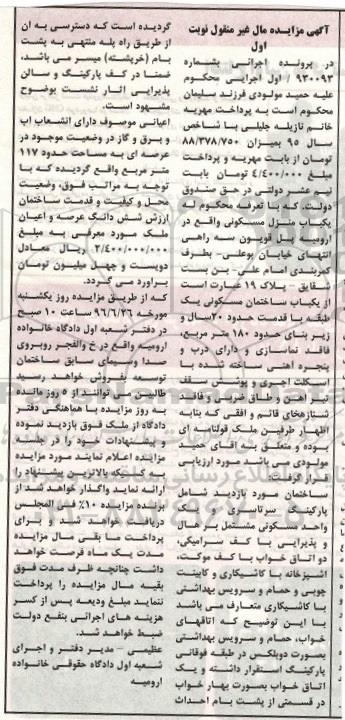 آگهی مزایده مال غیر منقول نوبت
اول
در پرونده اجرائی بشماره
۹۳۰۰۹۳ / اول اجرایی محکوم
علیه حمید مولودی فرزند سلیمان
محکوم است بـه پرداخت مهریه
خانم نازیله جلیلی با شاخص
سال ۹۵ بمیزان ۸۸/۳۷۸/۷۵۰
تومان از بابت مهریه و پرداخت
مبلغ ۴/۴۰۰/۰۰۰ تومان بابت
نیم عشر دولتی در حق صندوق
دولت. که با تعرفه محکوم له
یکباب منزل مسکونی واقع در
ارومیه پل قویون سه راهی
انتهای خیابان بوعلی- بطرف
کمربندی امام علی- بن بست
شقایق - پلاک ۱۹ عبارت است
از یکباب ساختمان مسکونی یک
طبقه با قدمت حدود ۲۰سال و
زیر بنای حدود ۱۸۰ متر مربع،
فاقد نماسازی و دارای درب و
پنجره آهنی ساخته شده با
اسکلت آجری و پوشش سقف
تیر آهن و طاق ضربی و فاقد
شناژهای قائم و افقی که بنابه
اظهار طرفین ملک قولنامه ای
بوده و متعلق به آقای حمید
مولودی می باشد مورد ارزیابی
قرار گرفت.
ساختمان مورد بازدید شامل
پارکینگ سرتاسری و یک
واحد مسکونی مشتمل بر هال
و پذیرایی با کف سرامیکی،
دو اتاق خواب با کف موکت،
آشپزخانه با کاشیکاری و کابینت
چوبی و حمام و سرویس بهداشتی
با کاشیکاری متعارف می باشد
با این توضیح که اتاقهای
خواب، حمام و سرویس بهداشتی
بصورت دوبلکس در طبقه فوقانی
پارکینگ استقرار داشته و یک
اتاق خواب بصورت بهار خواب
در قسمتی از پشت بام احداث
گردیده است که دسترسی به آن
از طریق راه پله منتهی به پشت
بام (خرپشته) میسر می باشد،
ضمنا در کف پارکینگ و سالن
پذیرایی آثار نشست بوضوح
مشهود است.
اعیانی موصوف دارای انشعاب آب
و برق و گاز در وضعیت موجود در
عرصه ای به مساحت حدود ۱۱۷
متر مربع واقع گردیده که با
توجه به مراتب فوق، وضعیت
محل و کیفیت و قدمت ساختمان
ارزش شش دانگ عرصه و اعیان
ملک مورد معرفی به مبلغ
۲/۴۰۰/۰۰۰/۰۰۰ ریال معادل
دویست و چهل میلیون تومان
برآورد می گردد.
که از طریق مزایده روز یکشنبه
مورخه ۹۶/۶/۲۶ ساعت ۱۰ صبح
در دفتر شعبه اول دادگاه خانواده
ارومیه واقع در خ والفجر روبروی
صدا وسیمای سابق ساختمان
توسعه بفروش خواهد رسید
طالبین می توانند از ۵ روز مانده
به روز مزایده با هماهنگی دفتر
دادگاه از ملک فوق بازدید نموده
و پیشنهادات خود را در جلسه
مزایده اعلام نمایند مورد مزایده
به کسیکه بالاترین پیشنهاد را
ارائه نماید واگذار خواهد شد از
برنده مزایده ۱۰٪ فی المجلس
دریافت خواهد شد و برای
پرداخت ما بقی مال مزایده
مدت یک ماه فرصت خواهد
داشت چنانچه ظرف مدت فوق
بقیه مال مزایده را پرداخت
ننماید مبلغ ودیعه پس از کسر
هزینه های اجرائی بنفع دولت
ضبط خواهد شد.
عظیمی - مدیر دفتر و اجرای
شعبه اول دادگاه حقوقی خانواده
ارومیه